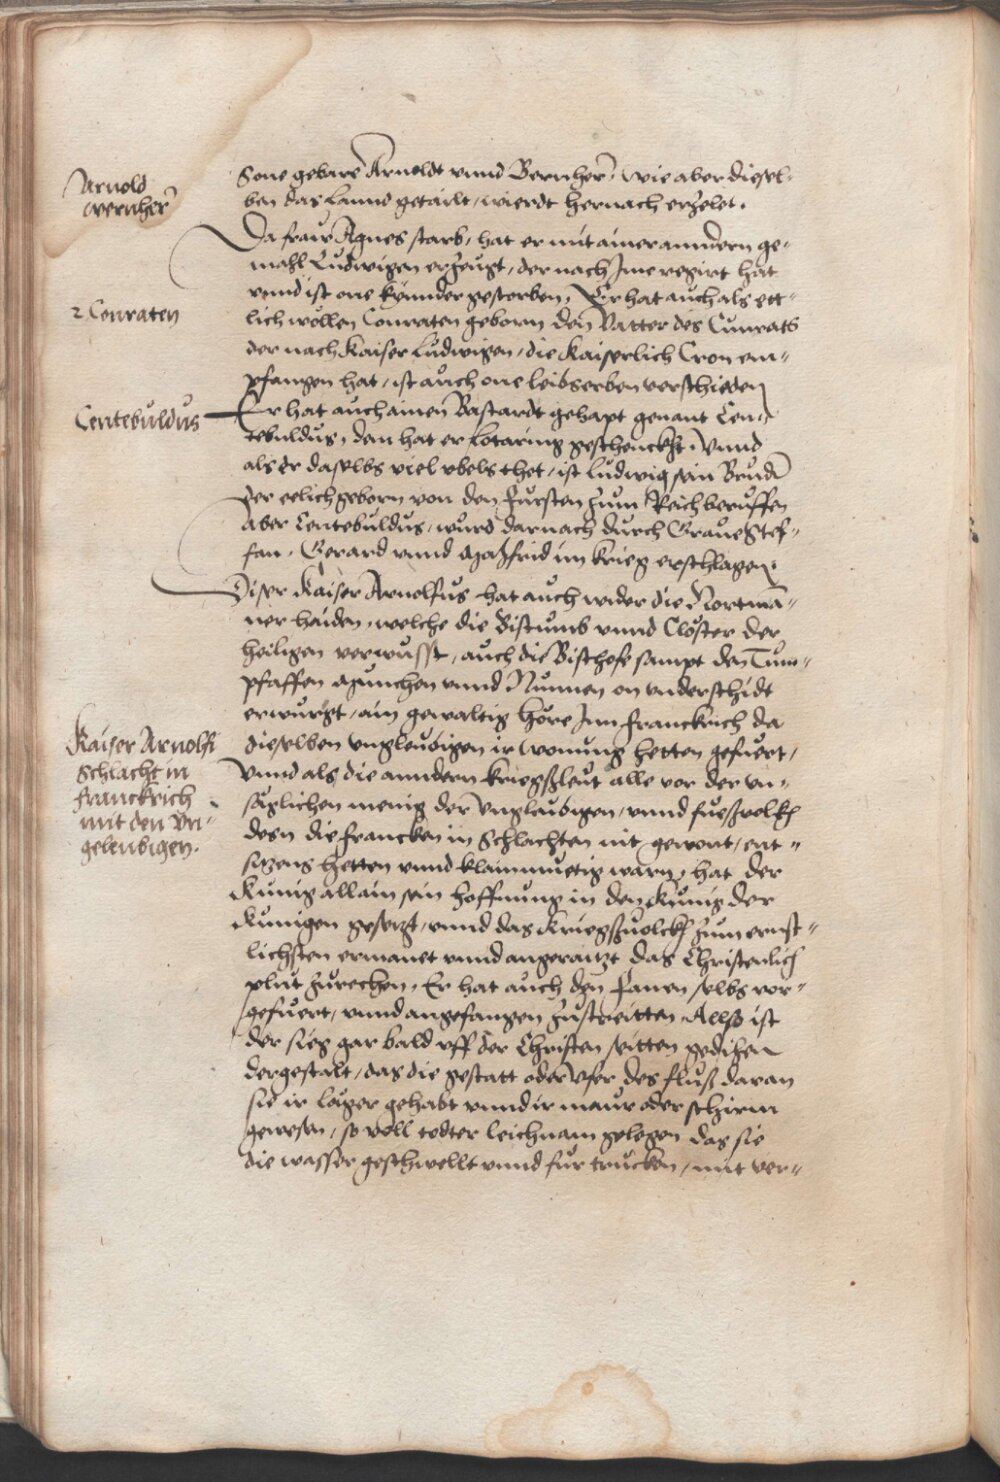 Arnold
Wernher
Sone gebare Arnoldt vnnd Wernher, wie aber diesel-
ben das Lannd getailt, wierdt hernach erzelet.
Da fraw Agnes starb, hat er mit ainer anndern ge-
mahl Ludwigen erzeugt, der nach Jme regirt hat
vnnd ist one kynnder gestorben, Er hat auch als ett-
2 Conraten
lich wöllen Conraten geborn den Vatter des Cunrats
der nach Kaiser Ludwigen, die Kaiserlich Cron em-
pfangen hat, ist auch one leibserben verschieden
Centebuldus
Er hat auch ainen Bastardt gehapt genant Cen-
tebuldus, dem hat er Lotaring geschenckht, Vnnd
als Er daselbs viel vbels thet, ist Ludwig sein Bruder
der eelich geborn von den Fursten zum Reich beruffen
aber Centebuldus, wurd darnach durch Graue Stef-
fan, Gerard vnnd Mazfrid im krieg erschlagen.
Diser Kaiser Arnolfus hat auch wider die Nortma-
ner haiden, welche die Bistumb vnnd Clöster der
heiligen verwusst, auch die Bischofe sampt den Tum-
pfaffen Munchen vnnd Nunnen on vnderschidt
erwurgt, ain gewaltig höre Jnn Franckrich da
Kaiser Arnolfi
Schlacht in
franckrich
mit den Vn-
geleubigen.
dieselben vngleubigen ir wonung hetten gefuert,
Vnnd als die anndern kriegßleut alle vor der vn-
säglichen menig der Vngleubigen, vnnd fueßvolkh
desn die Francken in Schlachten nit gewont, ent-
sitzens hetten vnnd klainmuetig warn, hat der
Kunig allain sein hoffnung in den Kunig der
Kunigen gesetzt, vnnd das Kriegßvolckh zum ernst-
lichsten ermanet vnnd angeraitzt das Christenlich
plut zurechen, Er hat auch den Fanen selbs vor-
gefuert, vnnd angefangen zustreitten Allso ist
der sieg gar bald vff der Christen seitten gedihen
dergestalt, das die gestatt oder Vfer des fluß daran
sie ir läger gehabt vnnd ir maur oder schirm
gewesen, so voll todter leichnam gelegen das sie
die wasser geschwellt vnnd fur trucken, mit ver-